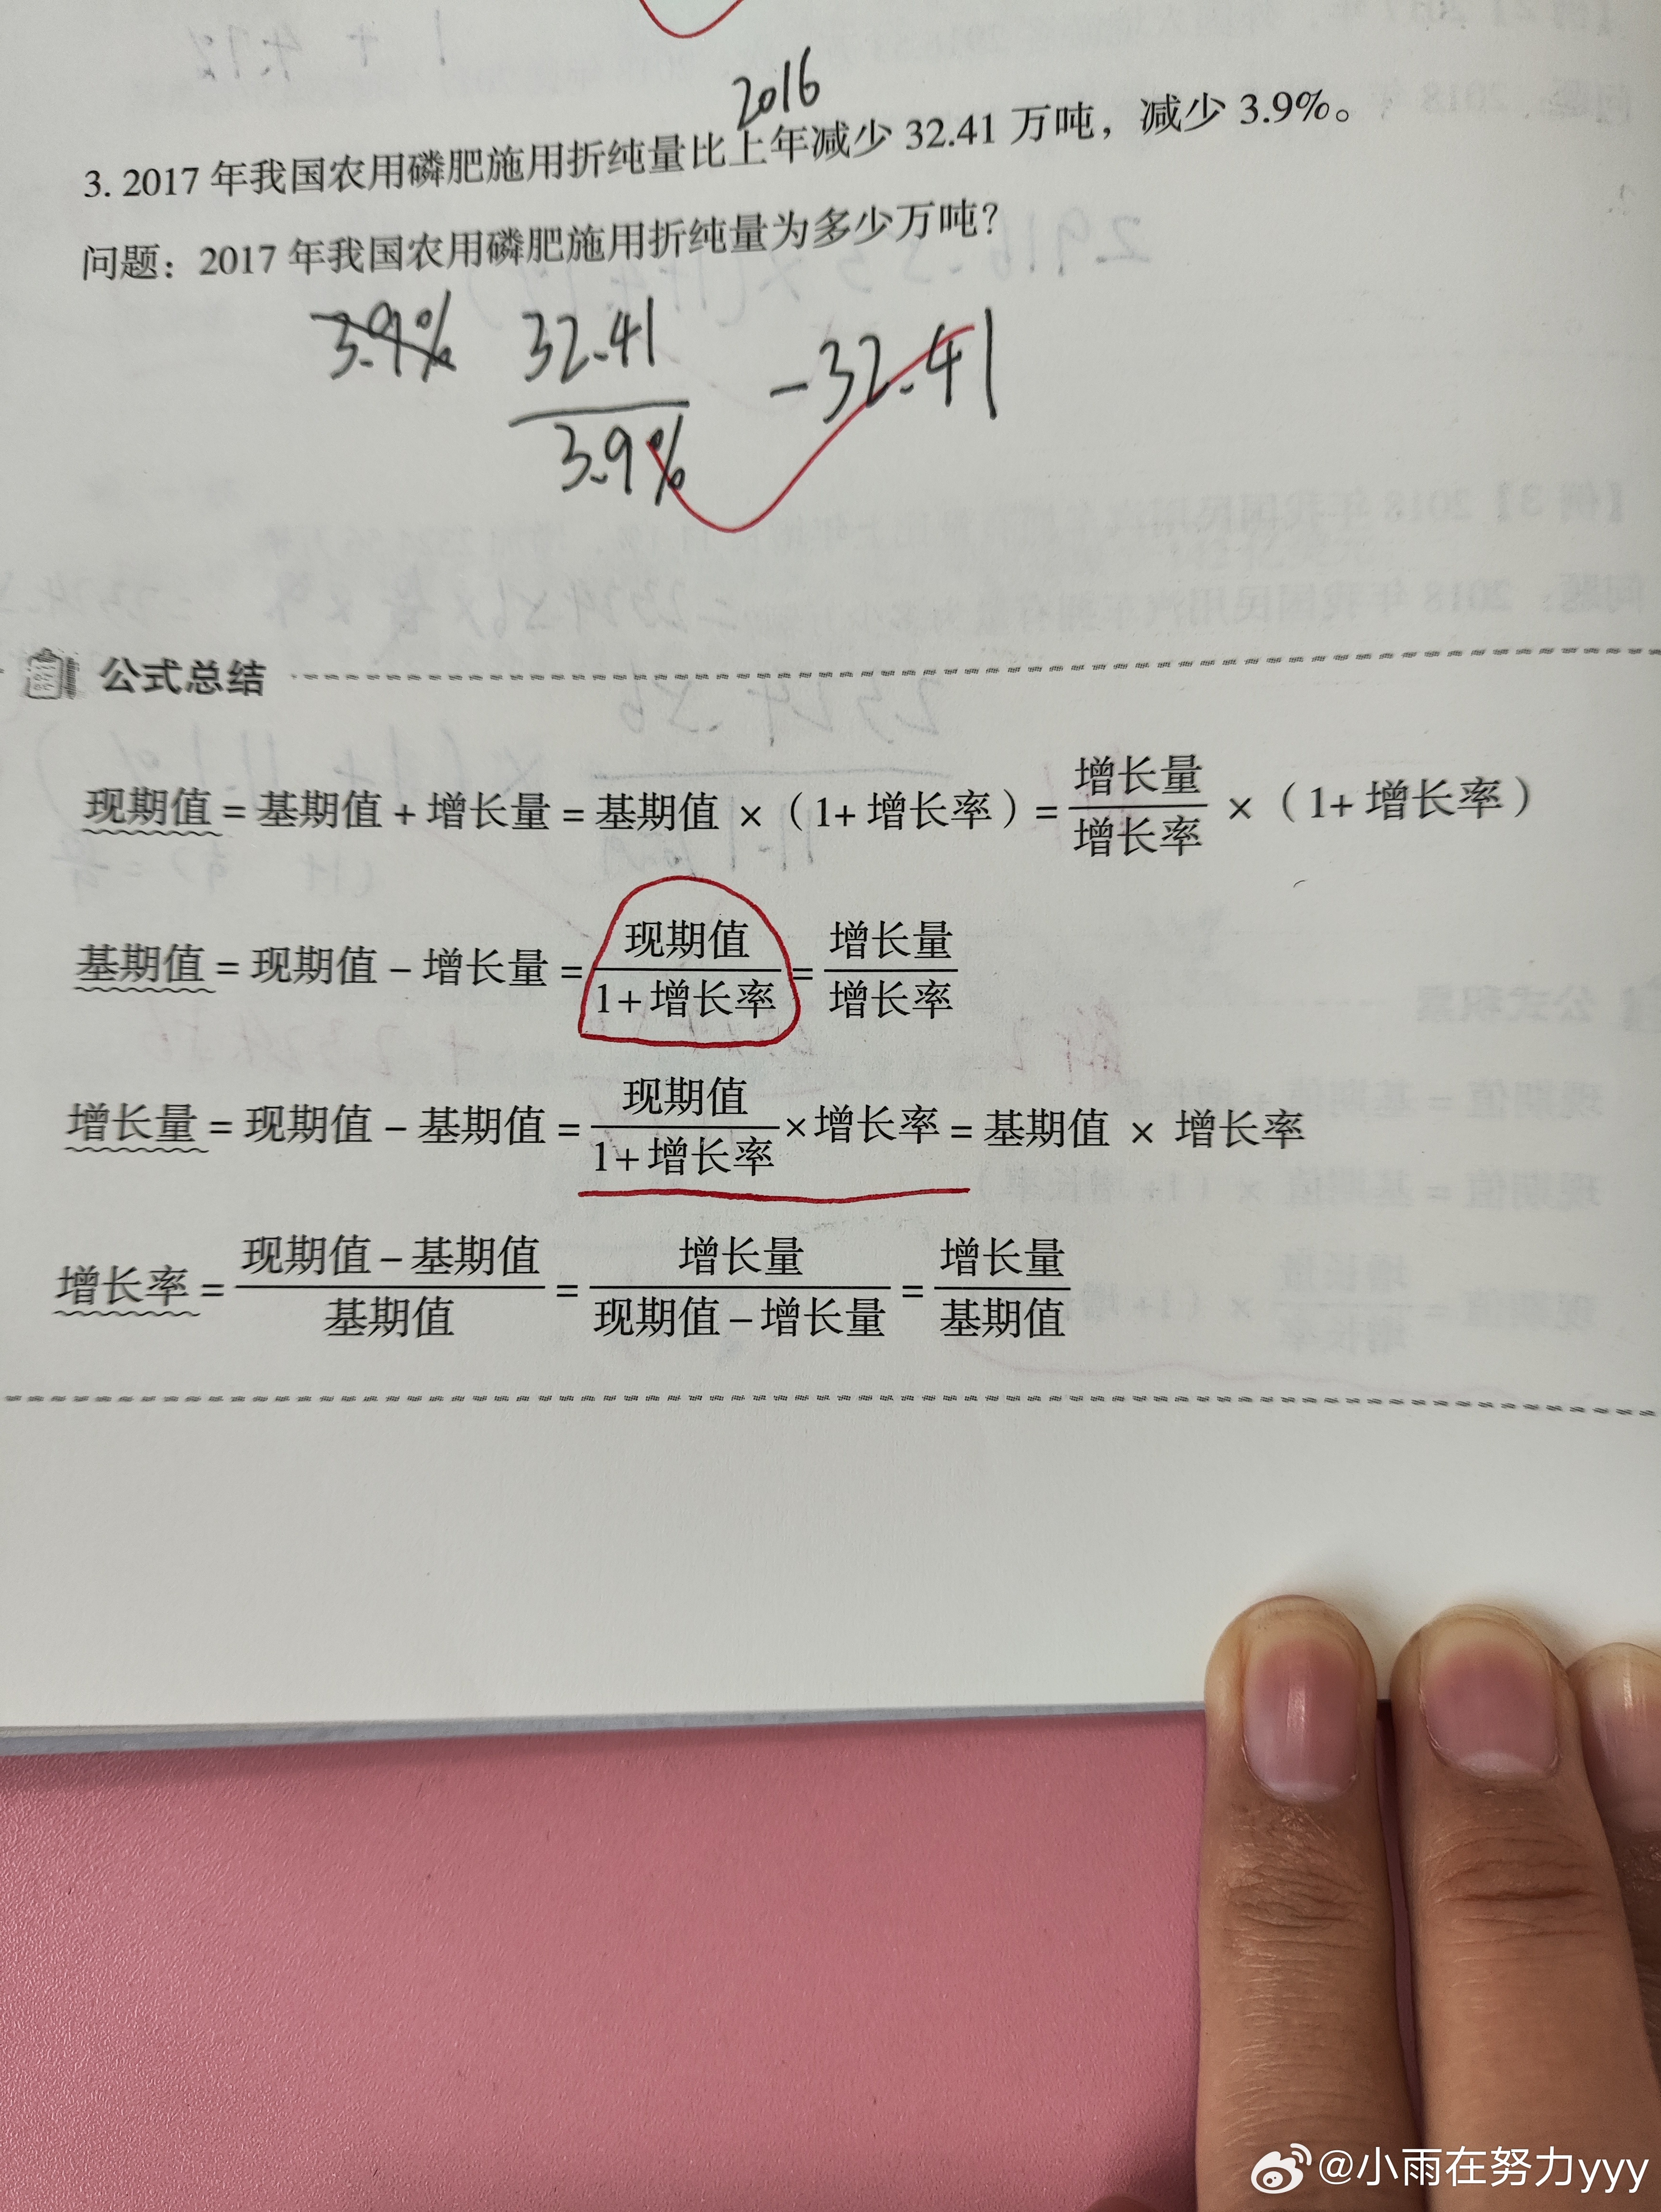 2016
3. 2017 年我国农用磷肥施用折纯量比上年减少 32.41 万吨，减少 3.9%。
问题：2017 年我国农用磷肥施用折纯量为多少万吨？
3.9% 32.41/3.9% -32.41
公式总结
现期值 = 基期值 + 增长量 = 基期值 ×（1+ 增长率）= 增长量/增长率 ×（1+ 增长率）
基期值 = 现期值 - 增长量 = 现期值/1+增长率 = 增长量/增长率
增长量 = 现期值 - 基期值 = 现期值/1+增长率 ×增长率 = 基期值 × 增长率
增长率 = 现期值-基期值/基期值 = 增长量/现期值-增长量 = 增长量/基期值
@小雨在努力yyy